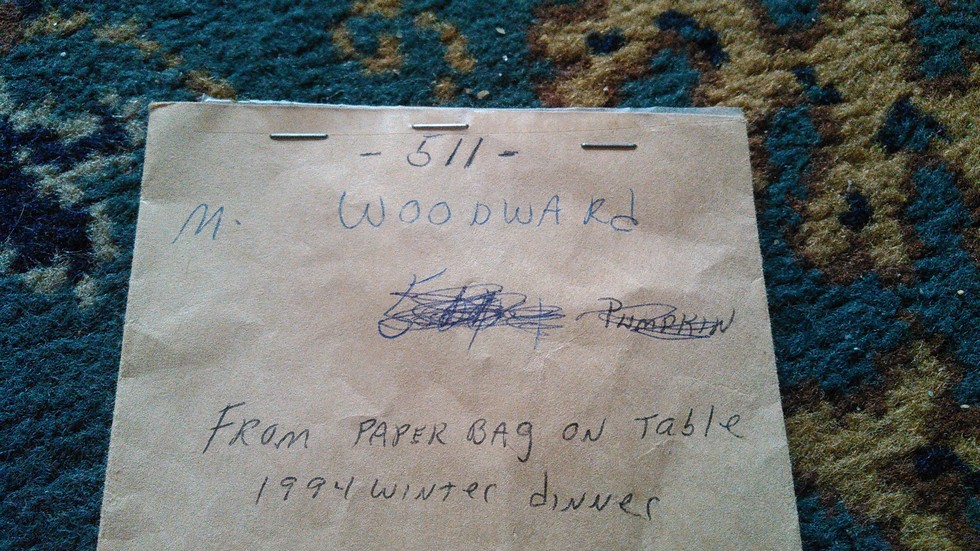 - 511 -
M. WOODWARd
PUMPKIN
FROM PAPER BAg ON Table
1994 WINTer dINNer